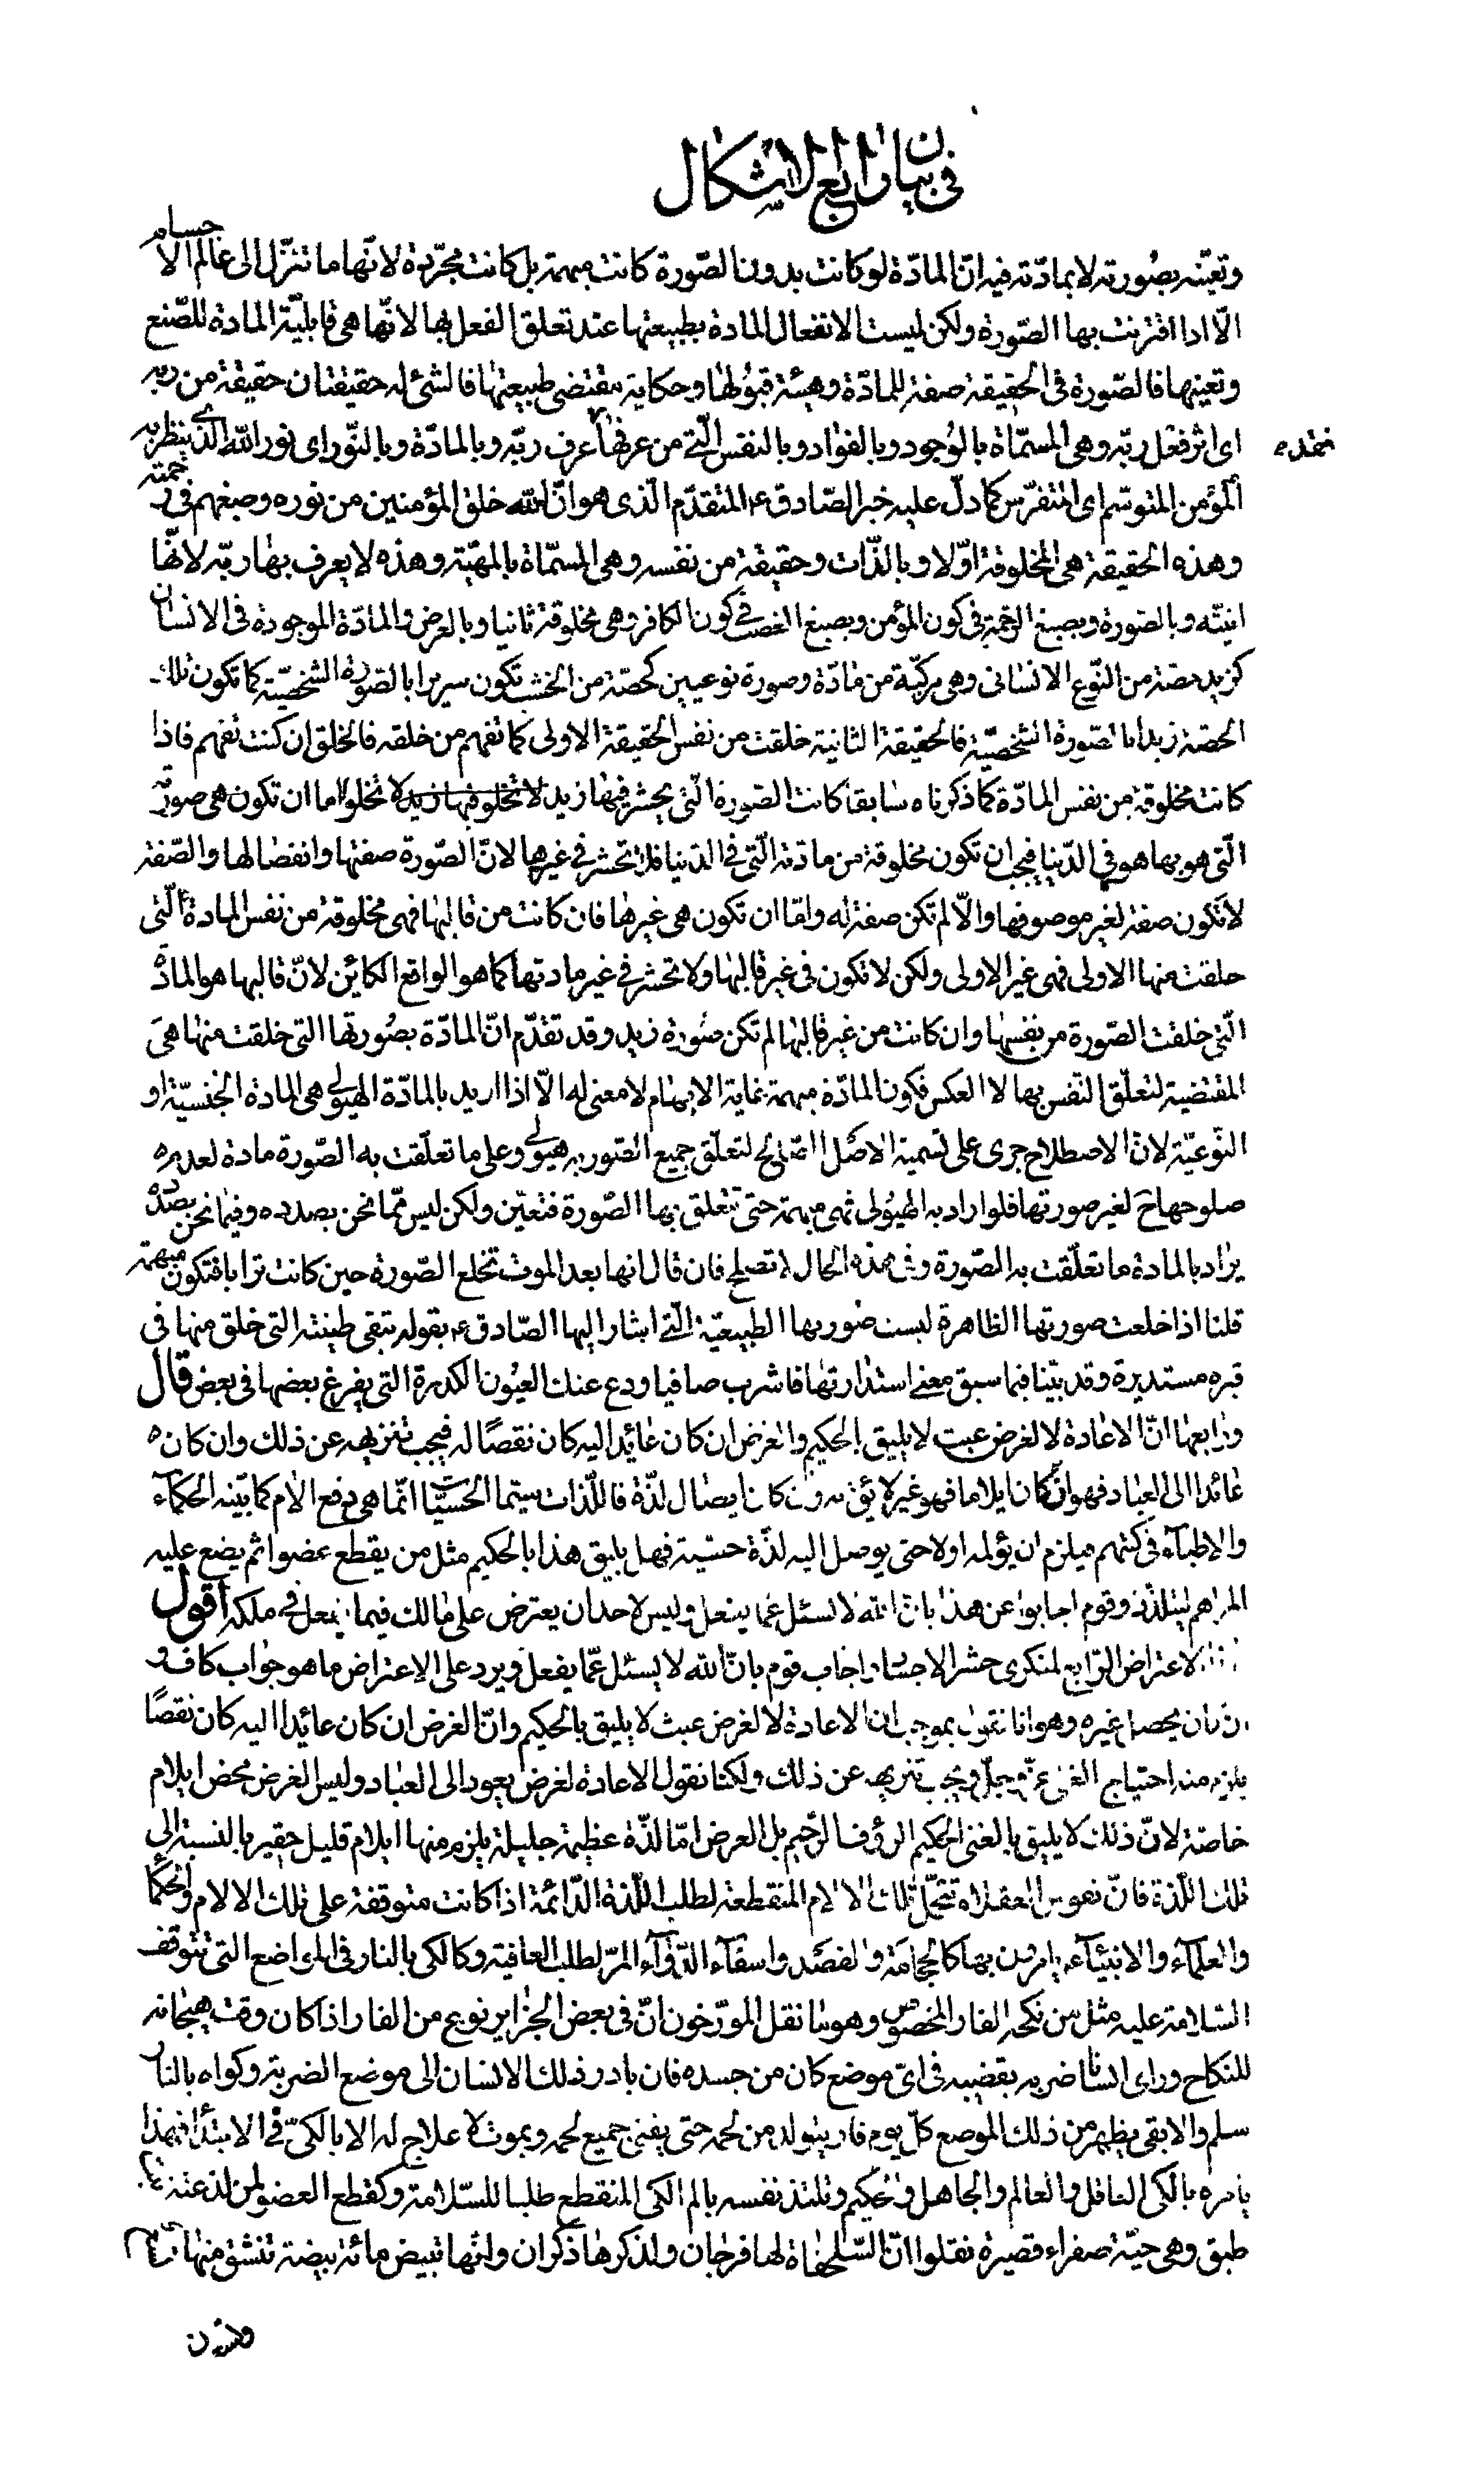 في بيان رابع الاشكال
وتعينه بصورته لا بمادته فيه ان المادة لو كانت بدون الصورة كانت مبهمة بل كانت مجردة لانها ما تنزل الى عالم الاجسام
الا اذا اقترنت بها الصورة ولكن ليست الا انفعال المادة بطبيعتها عند تعلق الفعل بها لانها هي قابلية المادة للصنع
وتعينها فالصورة في الحقيقة صفة للمادة وهيئة قبولها وحكاية مقتضى طبيعتها فالشئ له حقيقتان حقيقة من ربه
اي اثر فعل ربه وهي المسماة بالوجود وبالفؤاد وبالنفس التي من عرفها عرف ربه وبالمادة وبالنور اي نور الله الذي ينظر به
المؤمن المتوسم اي المتفرس كما دل عليه خبر الصادق ع المتقدم الذي هو ان الله خلق المؤمنين من نوره وصبغهم في رحمته
وهذه الحقيقة هي المخلوقة اولا وبالذات وحقيقة من نفسه وهي المسماة بالمهية وهذه لا يعرف بها ربه لانها
انيته وبالصورة وبصبغ الرحمة في كون المؤمن وبصبغ الغضب في كون الكافر وهي مخلوقة ثانيا وبالعرض والمادة الموجودة في الانسان
كزيد حصة من النوع الانساني وهي مركبة من مادة وصورة نوعيين كحصة من الخشب تكون سريرا بالصورة الشخصية كما تكون تلك
الحصة زيدا بالصورة الشخصية فالحقيقة الثانية خلقت من نفس الحقيقة الاولى كما تفهم من خلقه فالخلق ان كنت تفهم فاذا
كانت مخلوقة من نفس المادة كما ذكرناه سابقا كانت الصورة التي يحشر فيها زيد لا تخلو فيها زيد لا تخلو اما ان تكون هي صورته
التي هو بها هو في الدنيا فيجب ان تكون مخلوقة من مادته التي في الدنيا فلا تحشر في غيرها لان الصورة صفتها وانفصالها والصفة
لا تكون صفة لغير موصوفها والا لم تكن صفة له واما ان تكون هي غيرها فان كانت من قالبها فهي مخلوقة من نفس المادة التي
خلقت منها الاولى فهي غير الاولى ولكن لا تكون في غير قالبها ولا تحشر في غير مادتها كما هو الواقع الكائن لان قالبها هو المادة
التي خلقت الصورة من نفسها وان كانت من غير قالبها لم تكن صورة زيد وقد تقدم ان المادة بصورتها التي خلقت منها هي
المقتضية لتعلق النفس بها لا العكس فكون المادة مبهمة غاية الابهام لا معنى له الا اذا اريد بالمادة الهيولى هي المادة الجنسية او
النوعية لان الاصطلاح جرى على تسمية الاصل الصالح لتعلق جميع الصور به هيولى وعلى ما تعلقت به الصورة مادة لعدم
صلوحها ح لغير صورتها فلو اراد به الهيولى فهي مبهمة حتى تتعلق بها الصورة فتتعين ولكن ليس مما نحن بصدده وفيما نحن بصدده
يراد بالمادة ما تعلقت به الصورة وفي هذه الحال لا تصلح فان قال انها بعد الموت تخلع الصورة حين كانت ترابا فتكون مبهمة
قلنا اذا خلعت صورتها الظاهرة لبست صورتها الطبيعية التي اشار اليها الصادق ع بقوله تبقى طينته التي خلق منها في
قبره مستديرة وقد بينا فيما سبق معنى استدارتها فاشرب صافيا ودع عنك العيون الكدرة التي يفرغ بعضها في بعض قال
ورابعها ان الاعادة لا لغرض عبث لا يليق بالحكيم والغرض ان كان عائدا اليه كان نقصا له فيجب تنزيهه عن ذلك وان كان
عائدا الى العباد فهو ان كان ايلاما فهو غير لائق به وان كان ايصال لذة فاللذات سيما الحسيات انما هي دفع الالام كما بينه الحكماء
والاطباء في كتبهم فيلزم ان يؤلمه اولا حتى يوصل اليه لذة حسية فهل يليق هذا بالحكيم مثل من يقطع عضوا ثم يضع عليه
المراهم ليتلذذ وقوم اجابوا عن هذا بان الله لا يسئل عما يفعل وليس لاحد ان يعترض على مالك فيما يفعل في ملكه اقول
الاعتراض الرابع لمنكري حشر الاجساد اجاب قوم بان الله لا يسئل عما يفعل ويرد على الاعتراض ما هو جواب كاف
يحصل غيره وهو انا نقول بموجب ان الاعادة لا لغرض عبث لا يليق بالحكيم وان الغرض ان كان عائدا اليه كان نقصا
يلزم منه احتياج الغني عز وجل ويجب تنزيهه عن ذلك ولكنا نقول الاعادة لغرض يعود الى العباد وليس الغرض محض ايلام
خاصة لان ذلك لا يليق بالغني الحكيم الرؤف الرحيم بل الغرض اما لذة عظيمة جليلة يلزم منها ايلام قليل حقير بالنسبة الى
تلك اللذة فان نفوس العقلاء تتحمل تلك الالام المنقطعة لطلب اللذة الدائمة اذا كانت متوقفة على تلك الالام والحكما
والعلماء والانبياء ع يامرون بها كالحجامة والفصد واسقاء الدواء المر لطلب العافية وكالكي بالنار في المواضع التي تتوقف
السلامة عليه مثل من نكحه الفار المخصوص وهو ما نقل المورخون ان في بعض الجزاير نوع من الفار اذا كان وقت هيجانه
للنكاح وراى انسانا ضربه بقضيبه في اي موضع كان من جسده فان بادر ذلك الانسان الى موضع الضربة وكواه بالنار
سلم والا بقي يظهر من ذلك الموضع كل يوم فار يتولد من لحمه حتى يفنى جميع لحمه ويموت لا علاج له الا بالكي في الابتداء فهذا
يامره بالكي العاقل والعالم والجاهل والحكيم وتلتذ نفسه بالم الكي المنقطع طلبا للسلامة وكقطع العضو لمن لدغته
طبق وهي حية صفراء قصيرة نقلوا ان السلحفاة لها فرجان ولذكرها ذكران وانها تبيض مائة بيضة تنشق منها